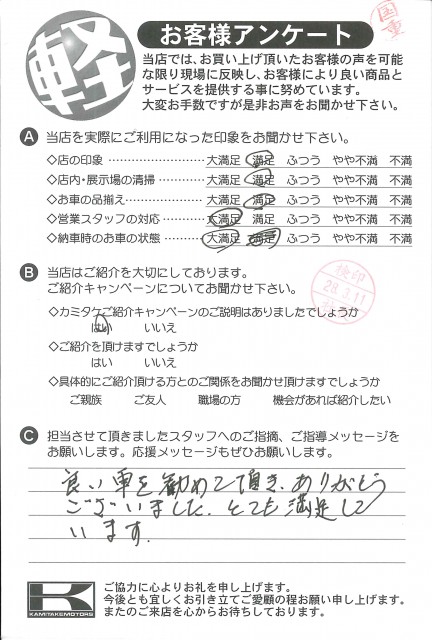 軽
お客様アンケート
当店では、お買い上げ頂いたお客様の声を可能
な限り現場に反映し、お客様により良い商品と
サービスを提供する事に努めています。
大変お手数ですが是非お声をお聞かせ下さい。
A 当店を実際にご利用になった印象をお聞かせ下さい。
◇店の印象 ………………… 大満足 満足 ふつう やや不満 不満
◇店内・展示場の清掃 ………… 大満足 満足 ふつう やや不満 不満
◇お車の品揃え ……………… 大満足 満足 ふつう やや不満 不満
◇営業スタッフの対応 ………… 大満足 満足 ふつう やや不満 不満
◇納車時のお車の状態 ………… 大満足 満足 ふつう やや不満 不満
B 当店はご紹介を大切にしております。
ご紹介キャンペーンについてお聞かせ下さい。
◇カミタケご紹介キャンペーンのご説明はありましたでしょうか
はい いいえ
◇ご紹介を頂けますでしょうか
はい いいえ
◇具体的にご紹介頂ける方とのご関係をお聞かせ頂けますでしょうか
ご親族 ご友人 職場の方 機会があれば紹介したい
検印
28.3.11
C 担当させて頂きましたスタッフへのご指摘、ご指導メッセージを
お願いします。応援メッセージもぜひお願いします。
良い車を勧めて頂き、ありがとう
ございました。とても満足して
います。
KAMITAKEMOTORS
ご協力に心よりお礼を申し上げます。
今後とも宜しくお引き立てご愛顧の程お願い申し上げます。
またのご来店を心からお待ちしております。